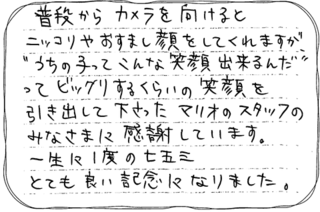 普段からカメラを向けると
ニッコリやおすまし顔をしてくれますが、
"うちの子ってこんな笑顔出来るんだ"
ってビックリするくらいの笑顔を
引き出して下さったマリオのスタッフの
みなさまに感謝しています。
一生に1度の七五三
とても良い記念になりました。